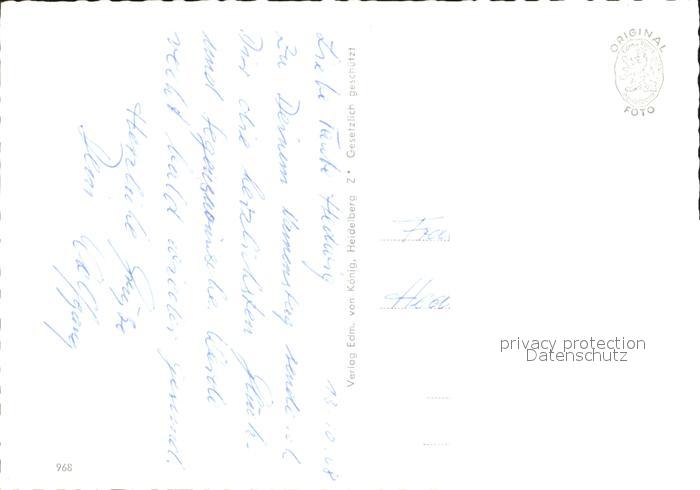 Liebe Tante Hedwig 13.10.68
Zu Deinem Namenstag sende ich
Dir die herzlichsten Glück-
und Segenswünsche. Werde
recht bald wieder gesund.
Herzliche Grüße
Dein Wolfgang
Verlag Edm. von König, Heidelberg Z* Gesetzlich geschützt
ORIGINAL
FOTO
Frau
privacy protection
Datenschutz
968